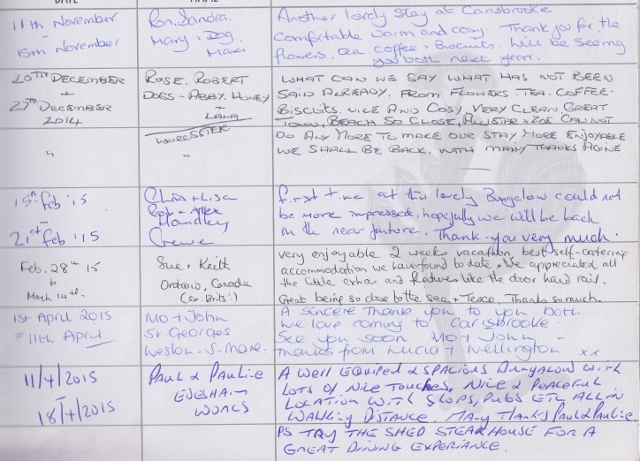 11th November Ron. Sandra. Another lovely stay at Carisbrooke
15th November Mary + Dog. Comfortable warm and cosy. Thank you for the
flowers. tea. coffee + Biscuits. Will be seeing
you both next year.
20TH DECEMBER ROSE. ROBERT WHAT CAN WE SAY WHAT HAS NOT BEEN
+ DOGS - ABBY. HONEY SAID ALREADY. FROM FLOWERS. TEA. COFFEE-
27TH DECEMBER + LANA BISCUITS. NICE AND COSY, VERY CLEAN GREAT
2014 WORCESTER. TOWN, BEACH SO CLOSE, ALISTAR + ZOE CAN NOT
" " DO ANY MORE TO MAKE OUR STAY MORE ENJOYABLE
WE SHALL BE BACK. WITH MANY THANKS
15th Feb '15 Chris + Lisa first time at this lovely Bungalow could not
- Handley be more impressed, hopefully we will be back
21st Feb '15 Crewe in the near future. Thank-you very much.
Feb. 28th 15 Sue + Keith very enjoyable 2 weeks vacation, best self-catering
to Ontario, Canada accommodation we have found to date, We appreciated all
March 14th. (ex. Brits!) the little extras and features like the door hand rail.
Great being so close to the sea + Tesco, Thanks so much.
1st April 2015 Mo + John A sincere thank you to you both.
- 11th April St Georges We love coming to Carisbrooke.
Weston-S-Mare. See you soon. Mo + John -
thanks from Lucia + Wellington xx
11/4/2015 PAUL & PAULINE A WELL EQUIPED & SPACIOUS BUNGALOW WITH
- EVESHAM LOTS OF NICE TOUCHES. NICE & PEACEFUL
18/4/2015 WORCS LOCATION WITH SHOPS, PUBS ETC ALL IN
WALKING DISTANCE. MANY THANKS PAUL & PAULINE.
PS TRY THE SHED STEAK HOUSE FOR A
GREAT DINING EXPERIENCE.